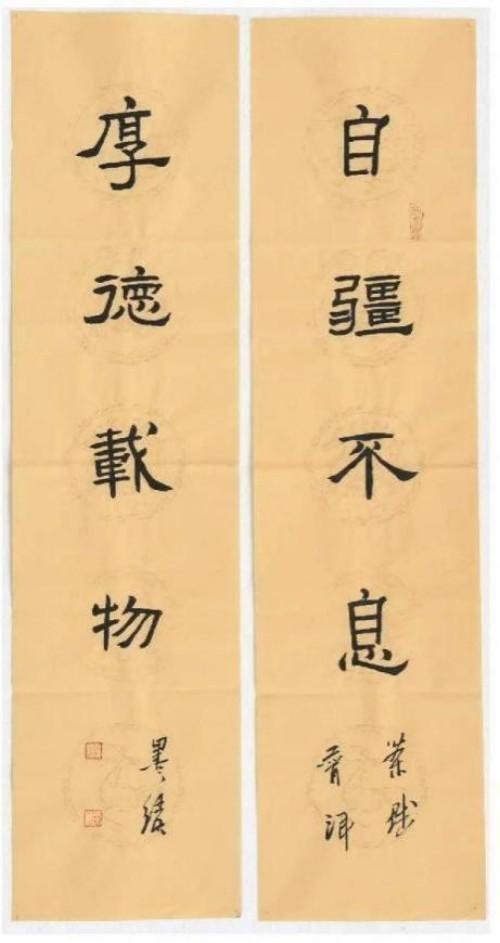 自疆不息
厚德載物